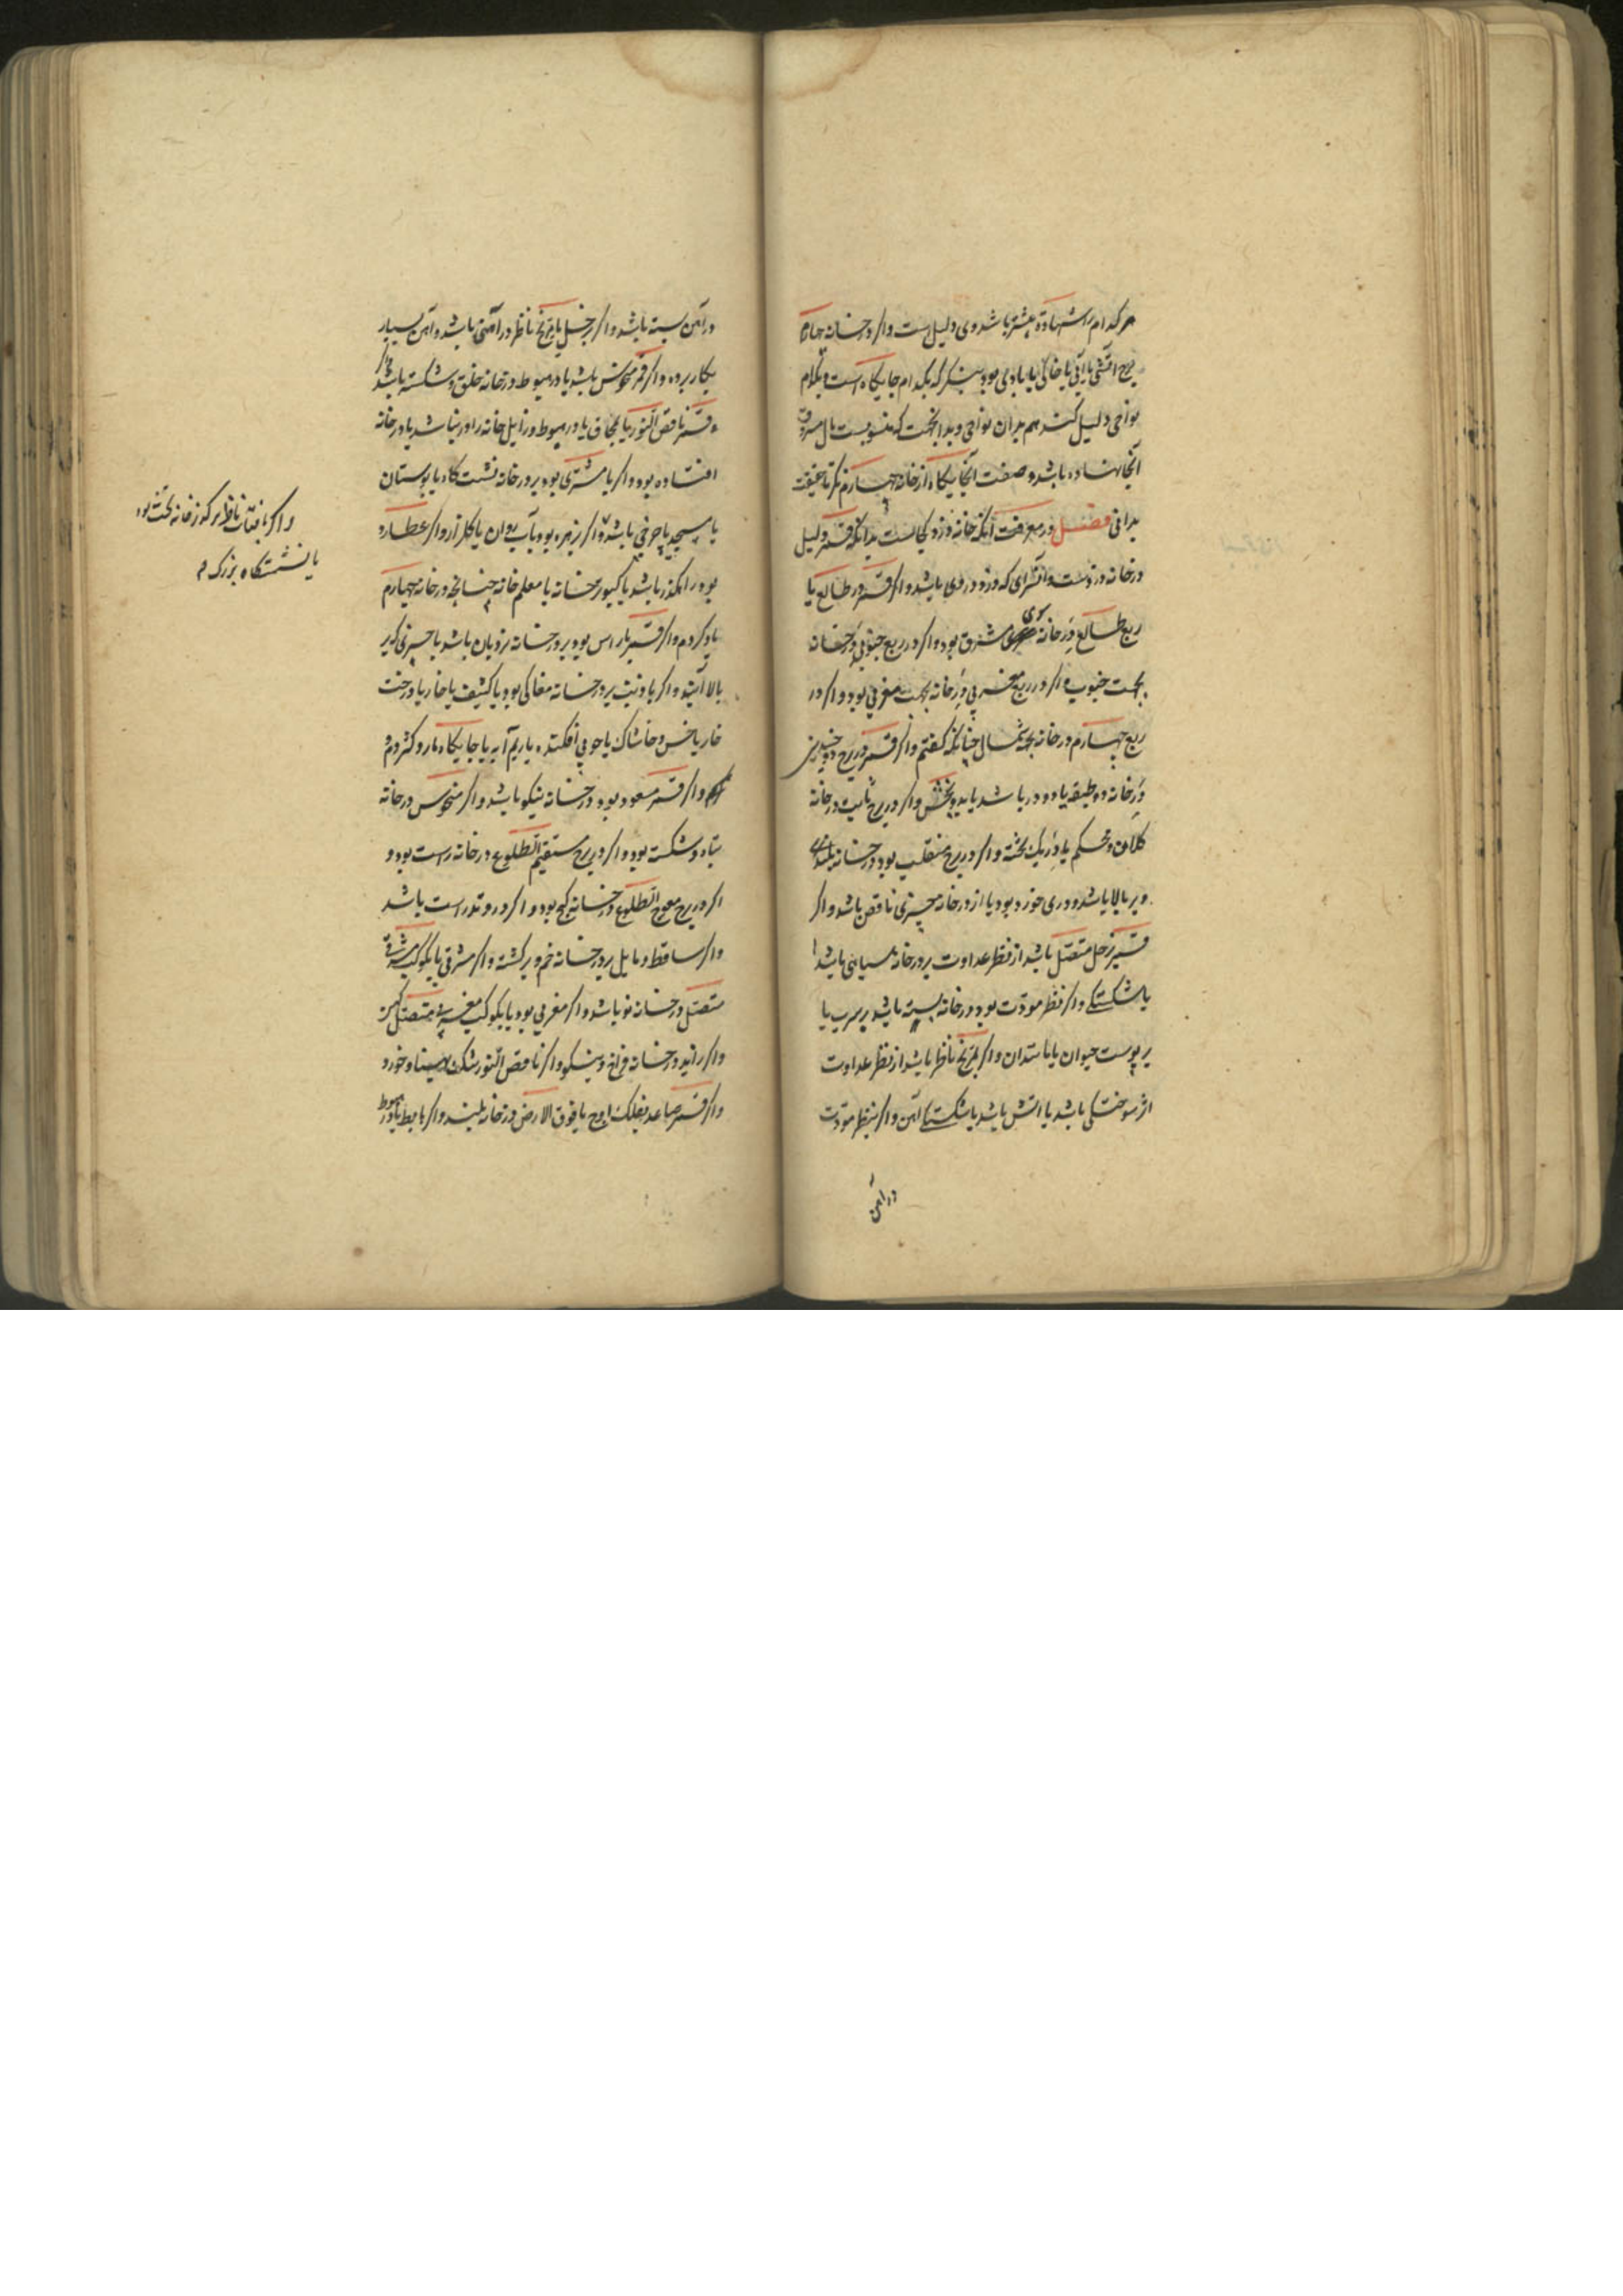 هر کدام را شهادة بیشتر باشد وی دلیل است و اگر در خانه چهارم
برج آتشی یا آبی یا خاکی یا بادی بود بنگر که بکدام جایگاه است و بکدام
نواحی دلیل کند هم بدان نواحی و بدان جهت که منسوبست مال مسروق
آنجا نهاده باشد و صفت آنجایگاه از خانه چهارم نگر تا حقیقت
بدانی فصل در معرفت آنکه خانه دزد کجاست بدانکه قمر دلیل
در خانه دزدست و آن سرای که دزد در وی باشد و اگر قمر در طالع یا
ربع طالع در خانه سوی مشرق بود و اگر در ربع جنوبی در خانه
بجهت جنوب و اگر در ربع مغربی در خانه بجهت مغربی بود و اگر در
ربع چهارم در خانه بجهة شمال چنانکه گفتم و اگر قمر در برج ذوجسدین
در خانه دو طبقه یا دو در باشد یا بدو بخش و اگر در برج ثابت در خانه
کلان و محکم یا در یک تخته و اگر در برج منقلب بود در خانه بلند
و بر بالا باشد و دری خورد بود یا از در خانه چیزی ناقص باشد و اگر
قمر بزحل متصل باشد از نظر عداوت بر در خانه سیاهی باشد
یا شکستگی و اگر نظر مودت بود در خانه بسته باشد بر سرب یا
بر پوست حیوان یا باستدان و اگر بمریخ ناظر باشد از نظر عداوت
اثر سوختگی باشد یا آتش باشد یا شکستگی آهن و اگر بنظر مودت
در آهن
در آهن بسته باشد و اگر بزحل یا مریخ ناظر در آهنی باشد و آهن بسیار
بکار برده و اگر قمر منحوس باشد یا در هبوط در خانه خلق و شکسته باشد و اگر
قمر ناقص النور یا بمحاق یا در هبوط و زایل خانه را در نباشد یا در خانه
افتاده بود و اگر با مشتری بود بر در خانه نشست گاه یا بوستان
یا مسجد یا چرخی باشد و اگر زهره بود یا آب روان یا گلزار و اگر عطارد
بود راهگذر باشد یا کبوترخانه یا معلم خانه چنانچه در خانه چهارم
یاد کردم و اگر قمر با راس بود بر در خانه نردبان باشد یا چیزی که بر
بالا آیند و اگر با ذنب بر در خانه مغاکی بود یا کنیف یا خار یا درخت
خار یا خس و خاشاک یا چوبی افکنده یا ریم آبه یا جایگاه مار و کژدم و
و اگر قمر مسعود بود در خانه نیکو باشد و اگر منحوس در خانه
تباه و شکسته بود و اگر در برج مستقیم الطلوع در خانه راست بود و
اگر در برج معوج الطلوع در خانه کج بود و اگر در وتد راست باشد
و اگر ساقط و مایل بر در خانه خم و برگشته و اگر مشرقی یا بکوکب مشرقی
متصل در خانه نو باشد و اگر مغربی بود یا بکوکب مغربی متصل کهن
و اگر زاید در خانه فراخ و نیکو و اگر ناقص النور تنک و خورد
و اگر قمر صاعد بفلک اوج یا فوق الارض در خانه بلند و اگر هابط یا در هبوط
و اگر بافتاب ناظر بر که در خانه تخت بود
یا نشستگاه بزرگ